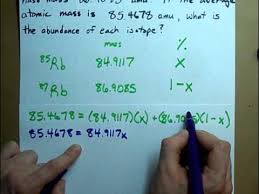 mass 86.9085 amu. If the average
atomic mass is 85.4678 amu, what is
the abundance of each isotope?
mass %
85Rb 84.9117 x
87Rb 86.9085 1-x
85.4678 = (84.9117)(x) + (86.9085)(1-x)
85.4678 = 84.9117x